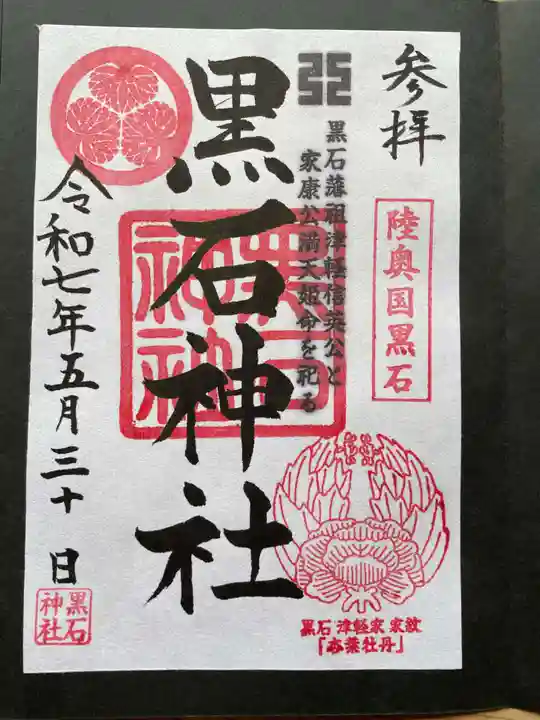 参拝
陸奥国黒石
黒石藩祖津軽信英公と
家康公満天姫命を祀る
黒石神社
黒石神社
令和七年五月三十日
黒石神社
黒石 津軽家 家紋
「杏葉牡丹」